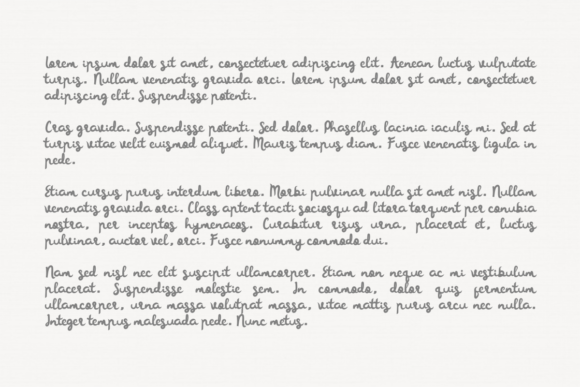 lorem ipsum dolor sit amet, consectetuer adipiscing elit. Aenean luctus vulputate
turpis. Nullam venenatis gravida orci. lorem ipsum dolor sit amet, consectetuer
adipiscing elit. Suspendisse potenti.
Cras gravida. Suspendisse potenti. Sed dolor. Phasellus lacinia iaculis mi. Sed at
turpis vitae velit euismod aliquet. Mauris tempus diam. Fusce venenatis ligula in
pede.
Etiam cursus purus interdum libero. Morbi pulvinar nulla sit amet nisl. Nullam
venenatis gravida orci. Class aptent taciti sociosqu ad litora torquent per conubia
nostra, per inceptos hymenaeos. Curabitur risus urna, placerat et, luctus
pulvinar, auctor vel, orci. Fusce nonummy commodo dui.
Nam sed nisl nec elit suscipit ullamcorper. Etiam non neque ac mi vestibulum
placerat. Suspendisse molestie sem. In commodo, dolor quis fermentum
ullamcorper, urna massa volutpat massa, vitae mattis purus arcu nec nulla.
Integer tempus malesuada pede. Nunc metus.